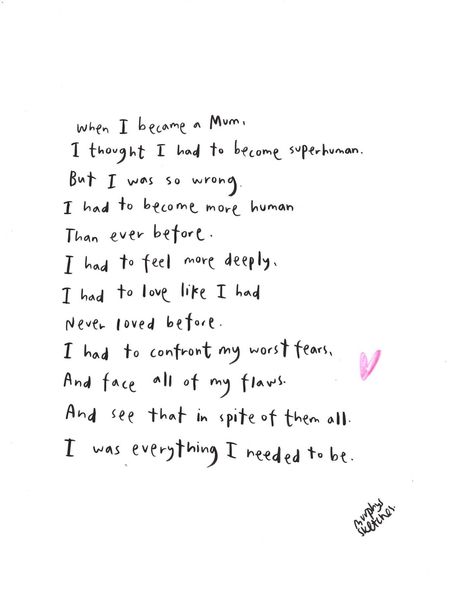 When I became a Mum,
I thought I had to become superhuman.
But I was so wrong.
I had to become more human
Than ever before.
I had to feel more deeply,
I had to love like I had
Never loved before.
I had to confront my worst fears,
And face all of my flaws.
And see that in spite of them all.
I was everything I needed to be.
Murphys
sketches.